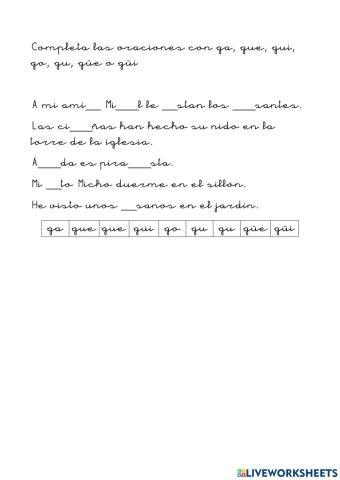 Completa las oraciones con ga, gue, gui,
go, gu, güe o güi
A mi ami__ Mi___l le __stan los ___santes.
Las ci___ñas han hecho su nido en la
torre de la iglesia.
Á___da es pira___sta.
Mi __to Micho duerme en el sillón.
He visto unos __sanos en el jardín.
ga gue gue gui go gu gu güe güi
LIVEWORKSHEETS